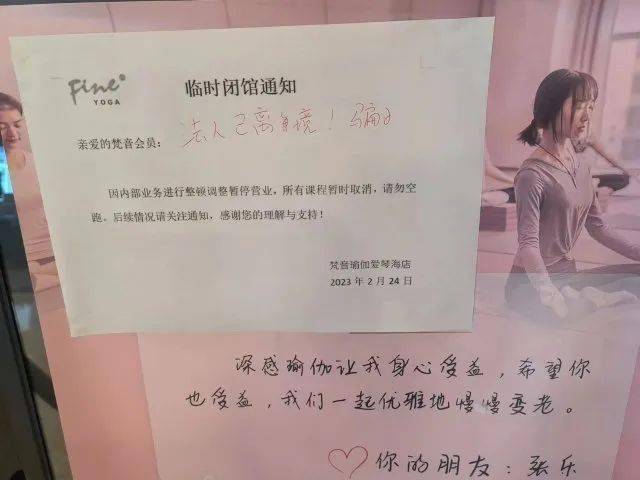 Fine
YOGA
临时闭馆通知
亲爱的梵音会员：
法人已离身境！骗子
因内部业务进行整顿调整暂停营业，所有课程暂时取消，请勿空
跑。后续情况请关注通知，感谢您的理解与支持！
梵音瑜伽爱琴海店
2023 年 2 月 24 日
深感瑜伽让我身心受益，希望你
也受益，我们一起优雅地慢慢变老。
你的朋友：张乐